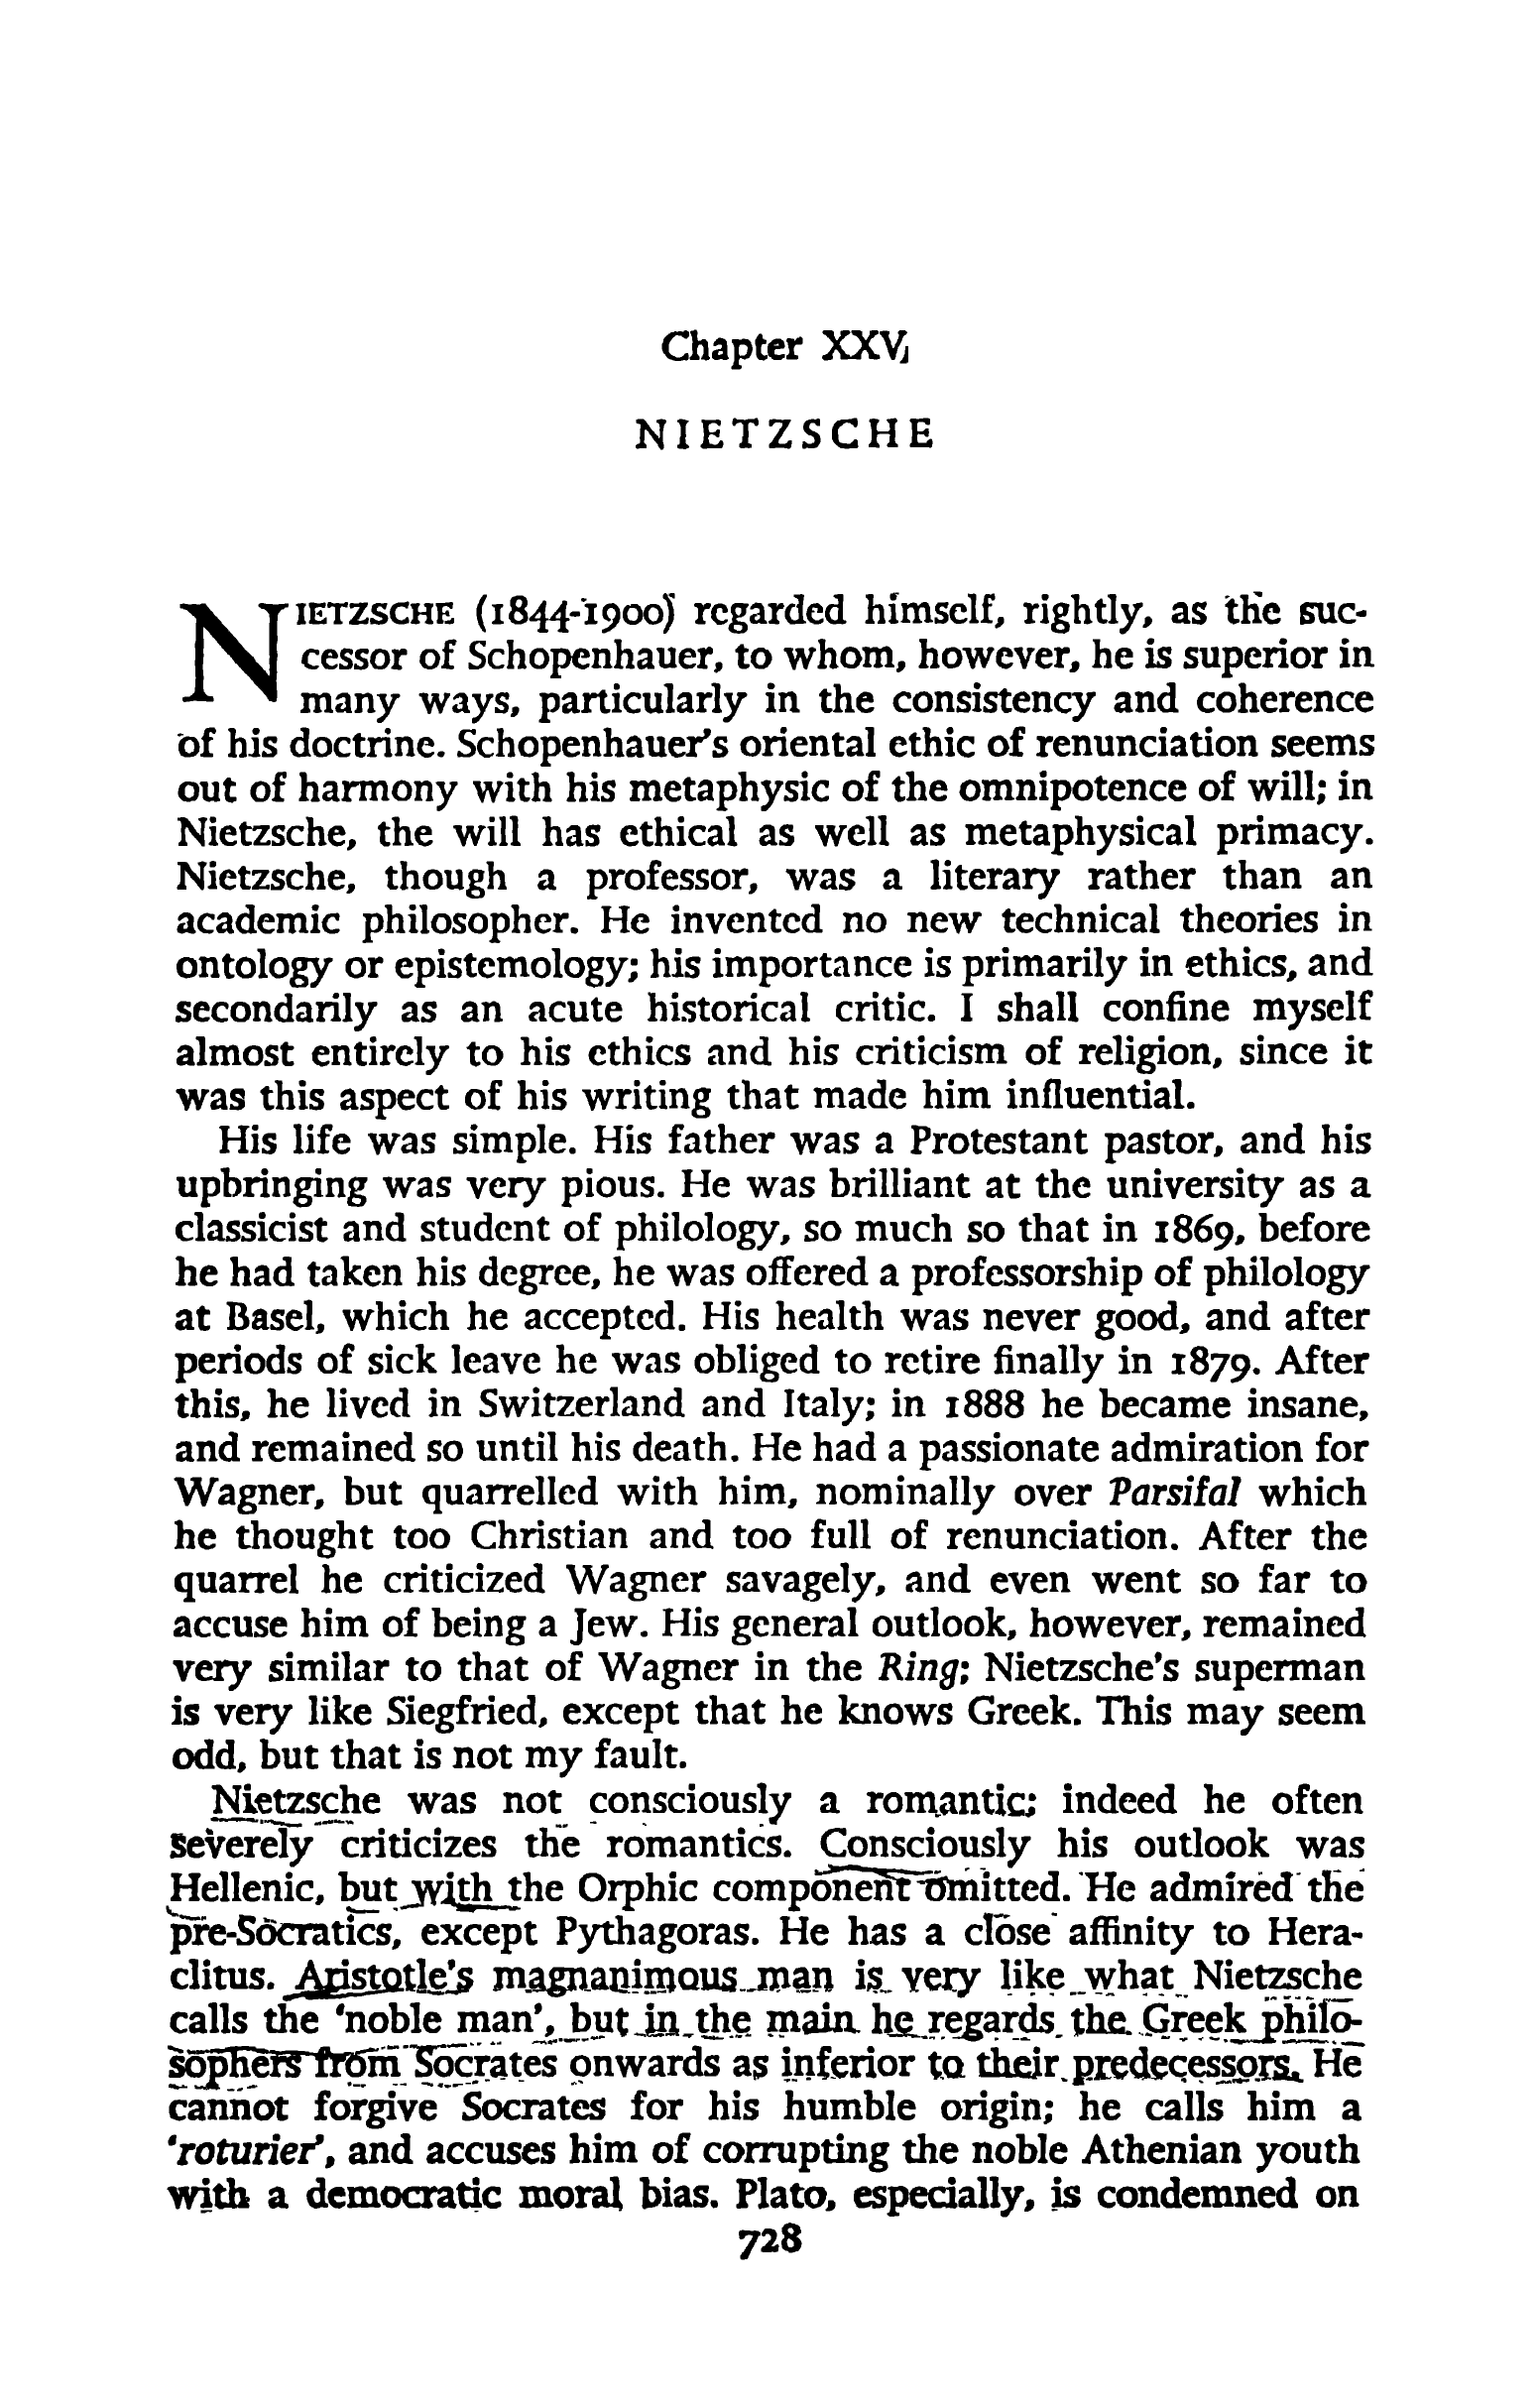 Chapter XXV
NIETZSCHE
NIETZSCHE (1844-1900) regarded himself, rightly, as the suc-
cessor of Schopenhauer, to whom, however, he is superior in
many ways, particularly in the consistency and coherence
of his doctrine. Schopenhauer's oriental ethic of renunciation seems
out of harmony with his metaphysic of the omnipotence of will; in
Nietzsche, the will has ethical as well as metaphysical primacy.
Nietzsche, though a professor, was a literary rather than an
academic philosopher. He invented no new technical theories in
ontology or epistemology; his importance is primarily in ethics, and
secondarily as an acute historical critic. I shall confine myself
almost entirely to his ethics and his criticism of religion, since it
was this aspect of his writing that made him influential.
His life was simple. His father was a Protestant pastor, and his
upbringing was very pious. He was brilliant at the university as a
classicist and student of philology, so much so that in 1869, before
he had taken his degree, he was offered a professorship of philology
at Basel, which he accepted. His health was never good, and after
periods of sick leave he was obliged to retire finally in 1879. After
this, he lived in Switzerland and Italy; in 1888 he became insane,
and remained so until his death. He had a passionate admiration for
Wagner, but quarrelled with him, nominally over Parsifal which
he thought too Christian and too full of renunciation. After the
quarrel he criticized Wagner savagely, and even went so far to
accuse him of being a Jew. His general outlook, however, remained
very similar to that of Wagner in the Ring; Nietzsche's superman
is very like Siegfried, except that he knows Greek. This may seem
odd, but that is not my fault.
Nietzsche was not consciously a romantic; indeed he often
severely criticizes the romantics. Consciously his outlook was
Hellenic, but with the Orphic component omitted. He admired the
pre-Socratics, except Pythagoras. He has a close affinity to Hera-
clitus. Aristotle's magnanimous man is very like what Nietzsche
calls the 'noble man', but in the main he regards the Greek philo-
sophers from Socrates onwards as inferior to their predecessors. He
cannot forgive Socrates for his humble origin; he calls him a
'roturier', and accuses him of corrupting the noble Athenian youth
with a democratic moral bias. Plato, especially, is condemned on
728